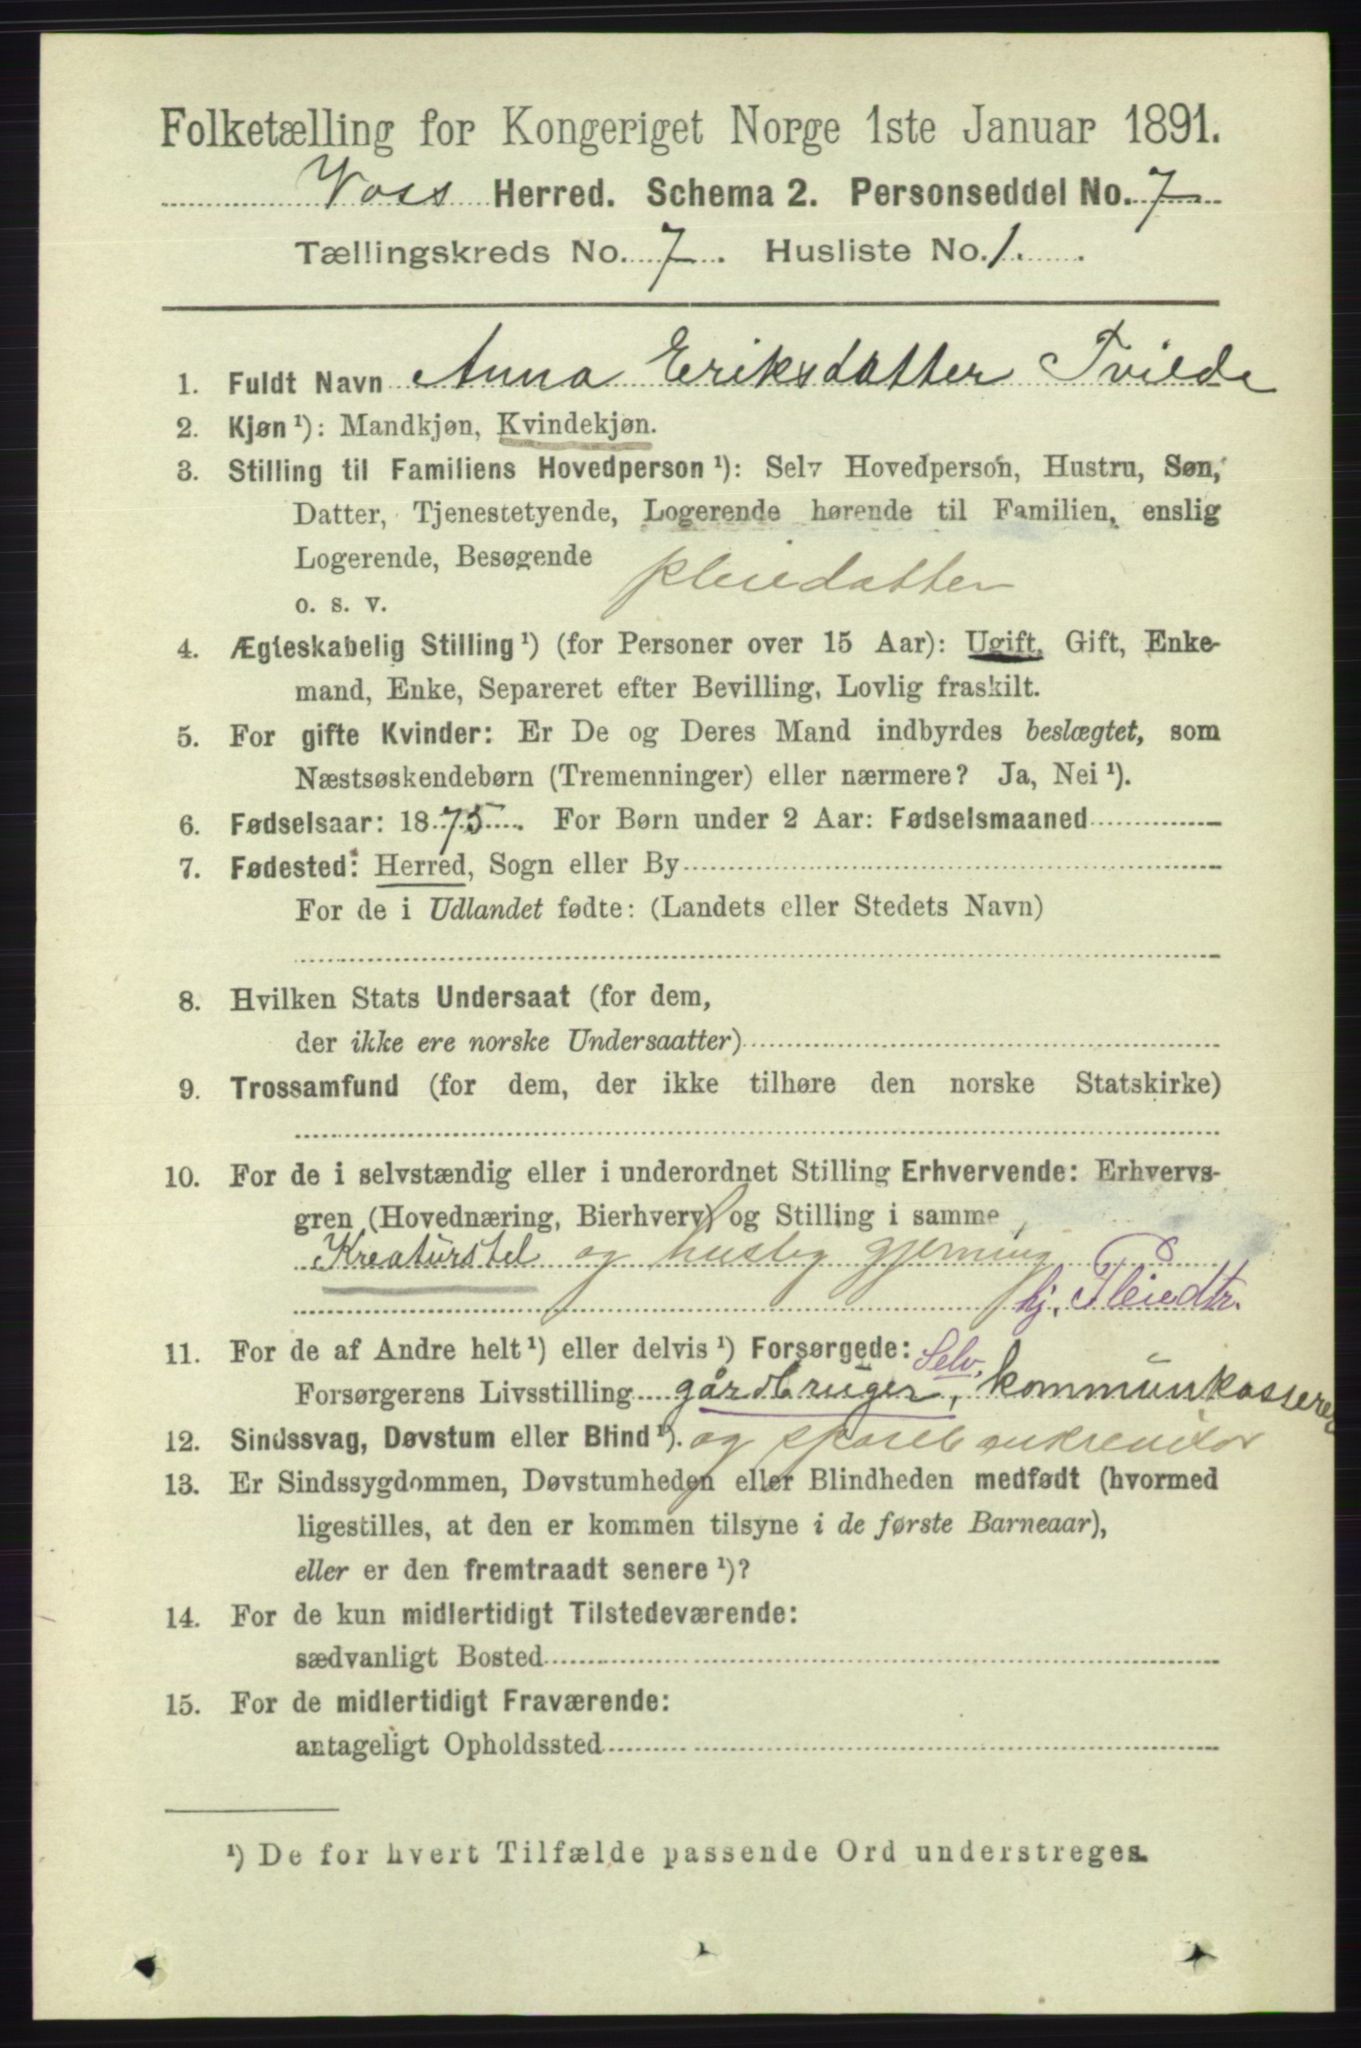 Folketælling for Kongeriget Norge 1ste Januar 1891.
Voss Herred. Schema 2. Personseddel No. 7
Tællingskreds No. 7. Husliste No. 1.
1. Fuldt Navn Anna Eriksdatter Tvilde
2. Kjøn ¹): Mandkjøn, Kvindekjøn.
3. Stilling til Familiens Hovedperson ¹): Selv Hovedperson, Hustru, Søn,
Datter, Tjenestetyende, Logerende hørende til Familien, enslig
Logerende, Besøgende
pleiedatter
o. s. v.
4. Ægteskabelig Stilling ¹) (for Personer over 15 Aar): Ugift, Gift, Enke-
mand, Enke, Separeret efter Bevilling, Lovlig fraskilt.
5. For gifte Kvinder: Er De og Deres Mand indbyrdes beslægtet, som
Næstsøskendebørn (Tremenninger) eller nærmere? Ja, Nei ¹).
6. Fødselsaar: 1875. For Børn under 2 Aar: Fødselsmaaned
7. Fødested: Herred, Sogn eller By
For de i Udlandet fødte: (Landets eller Stedets Navn)
8. Hvilken Stats Undersaat (for dem,
der ikke ere norske Undersaatter)
9. Trossamfund (for dem, der ikke tilhøre den norske Statskirke)
10. For de i selvstændig eller i underordnet Stilling Erhvervende: Erhvervs-
gren (Hovednæring, Bierhverv) og Stilling i samme
Kreaturstel og huslig gjerning
hj. Pleiedtr.
11. For de af Andre helt ¹) eller delvis ¹) Forsørgede:
Selv.
Forsørgerens Livsstilling gårdbruger, kommunkasserer
12. Sindssvag, Døvstum eller Blind ¹). og sparebankrevisor
13. Er Sindssygdommen, Døvstumheden eller Blindheden medfødt (hvormed
ligestilles, at den er kommen tilsyne i de første Barneaar),
eller er den fremtraadt senere ¹)?
14. For de kun midlertidigt Tilstedeværende:
sædvanligt Bosted
15. For de midlertidigt Fraværende:
antageligt Opholdssted
¹) De for hvert Tilfælde passende Ord understreges.